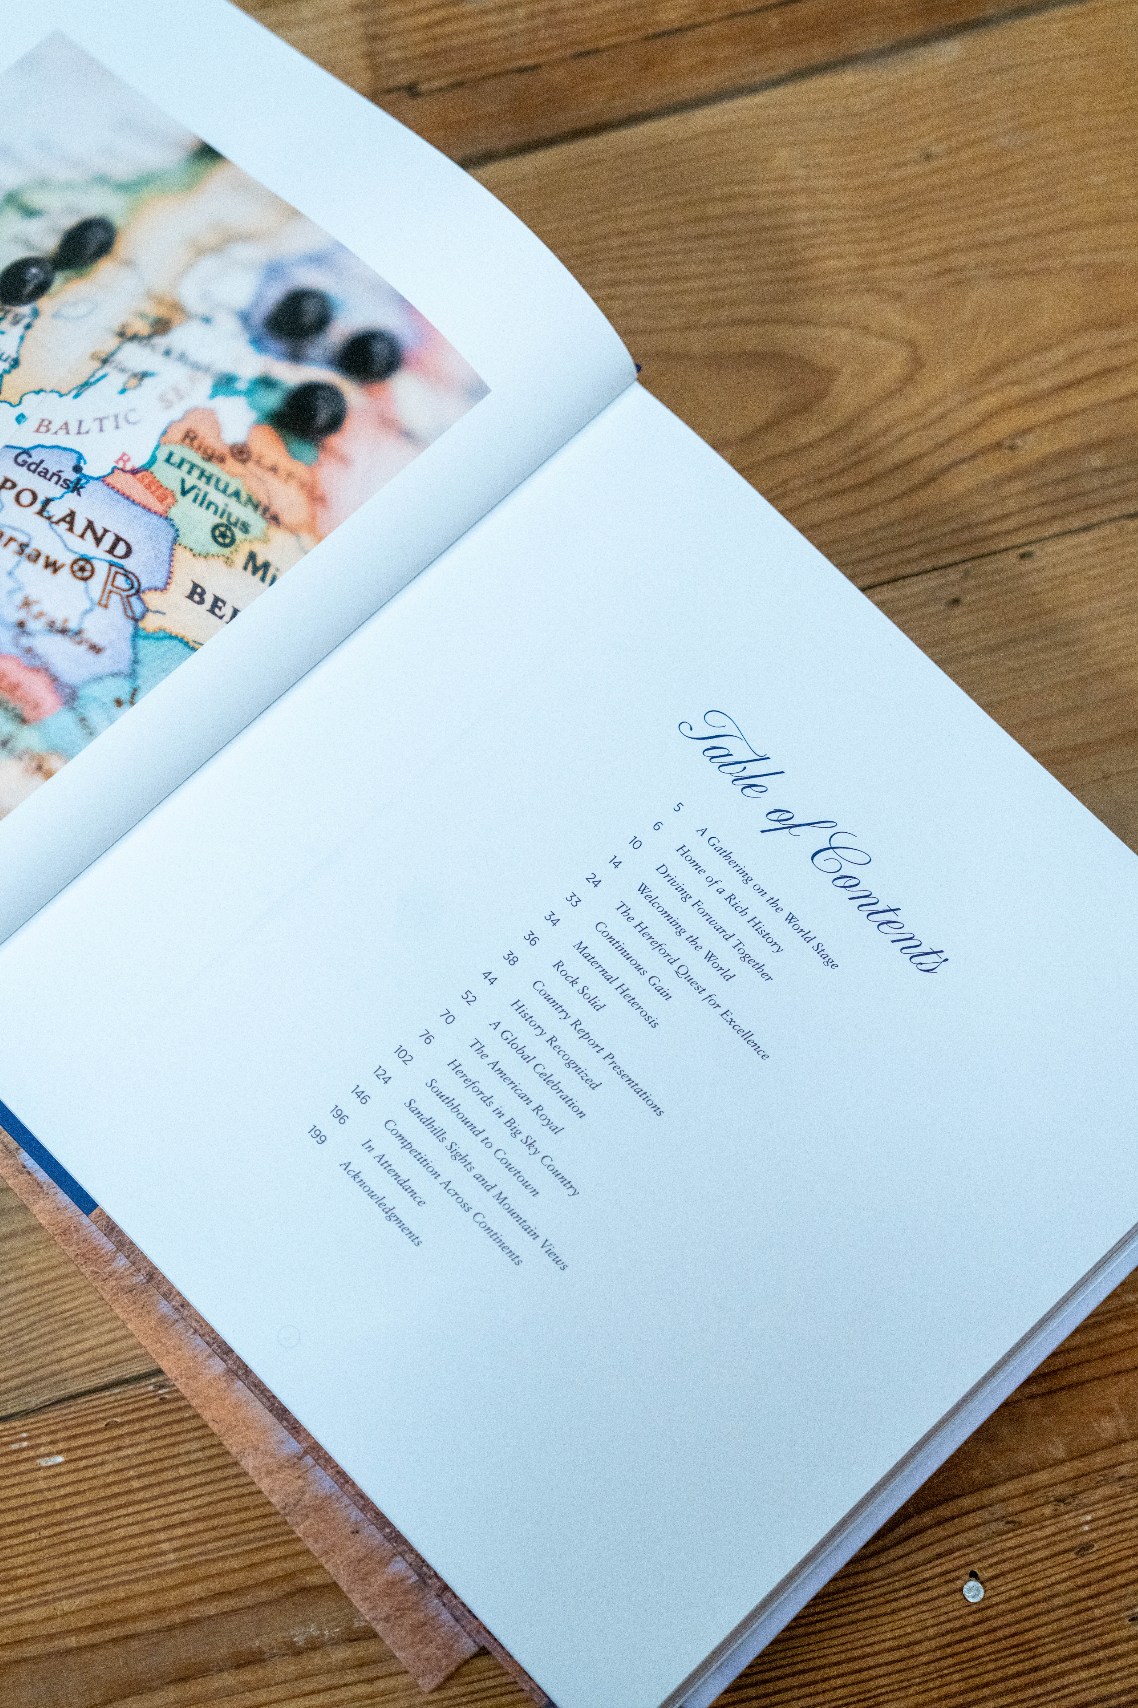 BALTIC
Gdańsk
POLAND
Riga
LITHUANIA
Vilnius
R
Kraków
Table of Contents
5 A Gathering on the World Stage
6 Home of a Rich History
10 Driving Forward Together
14 Welcoming the World
24 The Hereford Quest for Excellence
33 Continuous Gain
34 Maternal Heterosis
36 Rock Solid
38 Country Report Presentations
44 History Recognized
52 A Global Celebration
70 The American Royal
76 Herefords in Big Sky Country
102 Southbound to Cowtown
124 Sandhills Sights and Mountain Views
146 Competition Across Continents
196 In Attendance
199 Acknowledgments